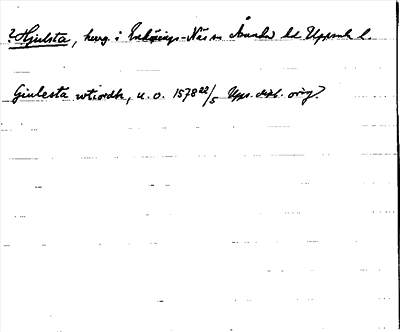 ? Hjulsta, herrg. i Enköpings-Näs sn Åsunda hd Uppsala l.
Giulesta wtiordh, u. o. 1578 22/5 Ups. dkl. orig?